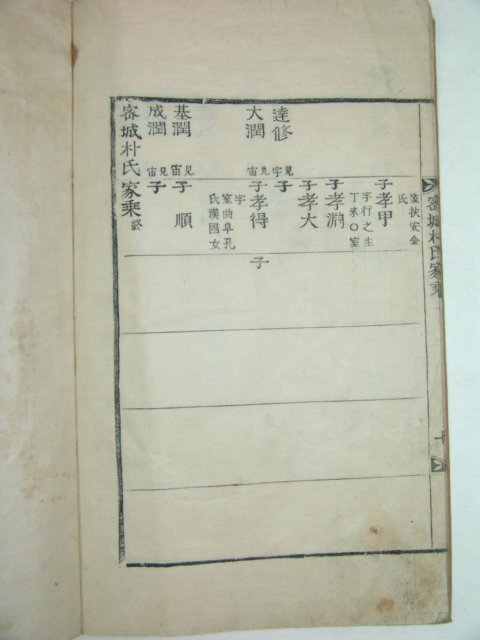 密城朴氏家乗
室扶安金
氏
子孝甲
字行之生
丁亥〇室
子孝淵
子孝大
達修 見宇 子
大潤 見宙 子孝得 子
字
室曲阜孔
氏漢國女
基潤 見宙 子 順
成潤 見宙 子
密城朴氏家乗 終